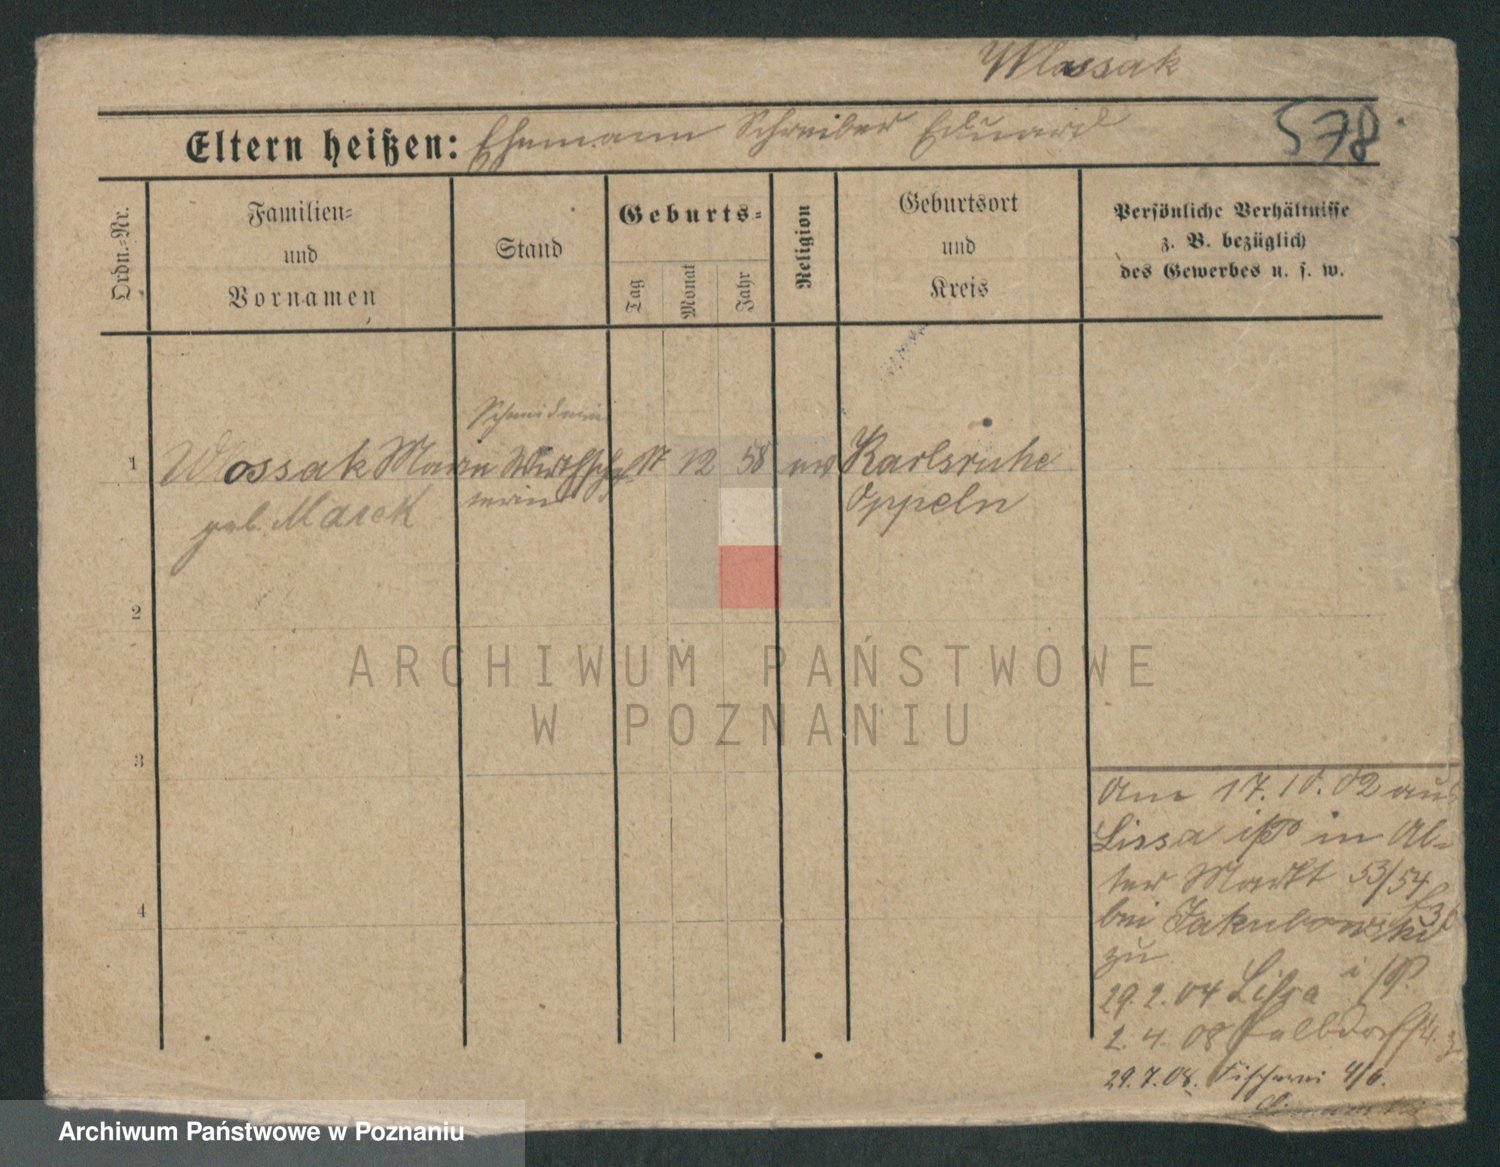 Wlossak
Eltern heißen: Ehemann Schreiber Eduard
578
Ordn.-Nr.
Familien-
und
Vornamen
Stand
Geburts-
Tag
Monat
Jahr
Religion
Geburtsort
und
Kreis
Persönliche Verhältnisse
z. B. bezüglich
des Gewerbes u. s. w.
Schneiderin
1 Wlossak Marie Wirthschaf 17 12 58 Karlsruhe
terin
geb. Marek Oppeln
2
3
4
Am 17.10.02 aus
Lissa i/P in Al-
ter Markt 53/54
bei Jakubowski
zu
29.2.04 Lissa i/P.
2.4.08
29.7.08. Fischerei 4/6.
ARCHIWUM PAŃSTWOWE
W POZNANIU
Archiwum Państwowe w Poznaniu